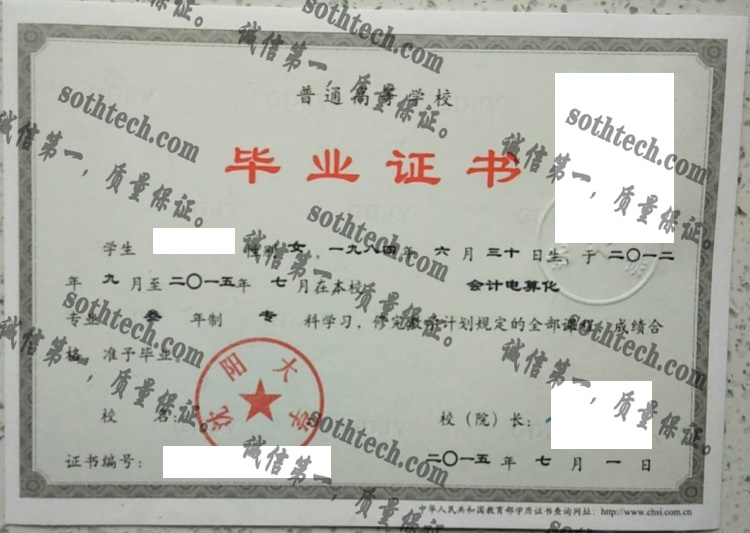 普通高等学校
毕业证书
学生 性别 女,一九八四年 六 月 三十 日生,于 二〇一二
年 九 月至 二〇一五年 七 月在本校 会计电算化
专业 叁 年制 专 科学习,修完教学计划规定的全部课程,成绩合
格,准予毕业。
校 名: 校(院)长:
沈阳大学
证书编号: 二〇一五 年 七 月 一 日
中华人民共和国教育部学历证书查询网址: http://www.chsi.com.cn
sothtech.com
诚信第一,质量保证。
sothtech.com
诚信第一,质量保证。
sothtech.com
诚信第一,质量保证。
sothtech.com
诚信第一,质量保证。
sothtech.com
诚信第一,质量保证。
sothtech.com
诚信第一,质量保证。
sothtech.com
诚信第一,质量保证。